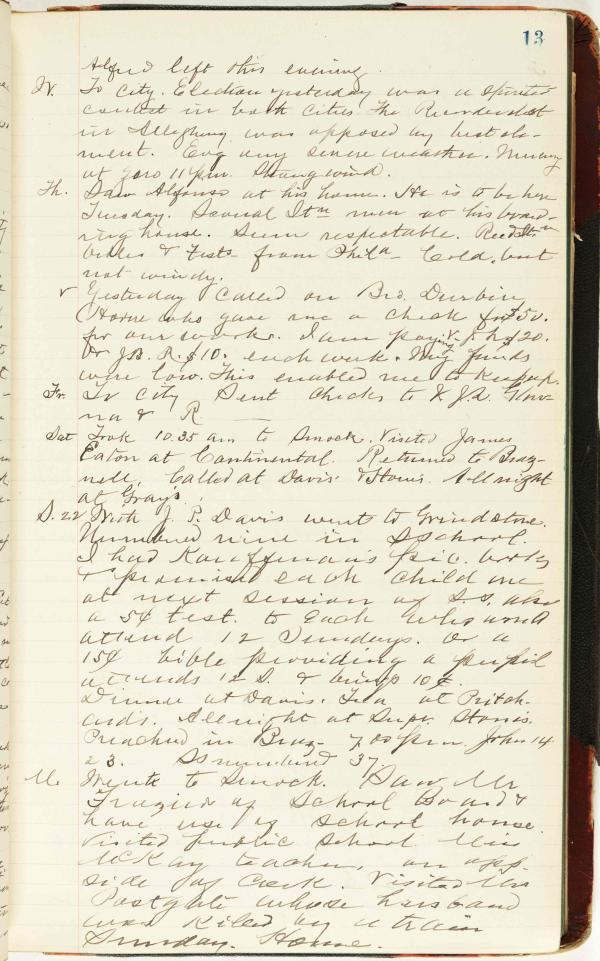 13
Alfred left this evening.
W. To City. Election yesterday was a spirited
contest in both Cities. The Recorder elect
in Allegheny was opposed by best ele-
ment. Eve. very severe weather. Mercury
at zero 11 p.m. Strong wind.
Th. Saw Alfonso at his home. He is to be here
Tuesday. Several Itn men at his board-
ing house. Seem respectable. Recd Itn
bibles & Tests from Phila Cold, but
not windy.
Yesterday called on Bro. Durbin
Horne who gave me a check for $50.
for our work. I am paying $20.
& J.B. R. $10. each week. My funds
were low. This enabled me to keep up.
Fr. To City Sent checks to
& R
Sat Took 10.35 am to Smock. Visited James
Eaton at Continental. Returned to Braz-
nell. Called at Davis' & Stones. All night
at Gray's.
S. 22 With J. P. Davis went to Grindstone.
Numbered nine in S School.
I had Kauffman's pic. books
& promised each child one
at next session of S.S. also
a 5¢ test. to each who would
attend 12 Sundays. Or a
15¢ bible providing a pupil
attends 12 S. & brings 10¢.
Dinner at Davis. Tea at Pritch-
ard's. All night at Supt. Stones.
Preached in Braz- 7.00 p.m. John 14
23. SS numbered 37.
M. Went to Smock. Saw Mr
Frazier of School Board &
have use of school house.
Visited public school Miss
McKay teacher, on opp.
side of Creek. Visited Mrs
Postgate whose husband
was killed by a train
Sunday. Home.